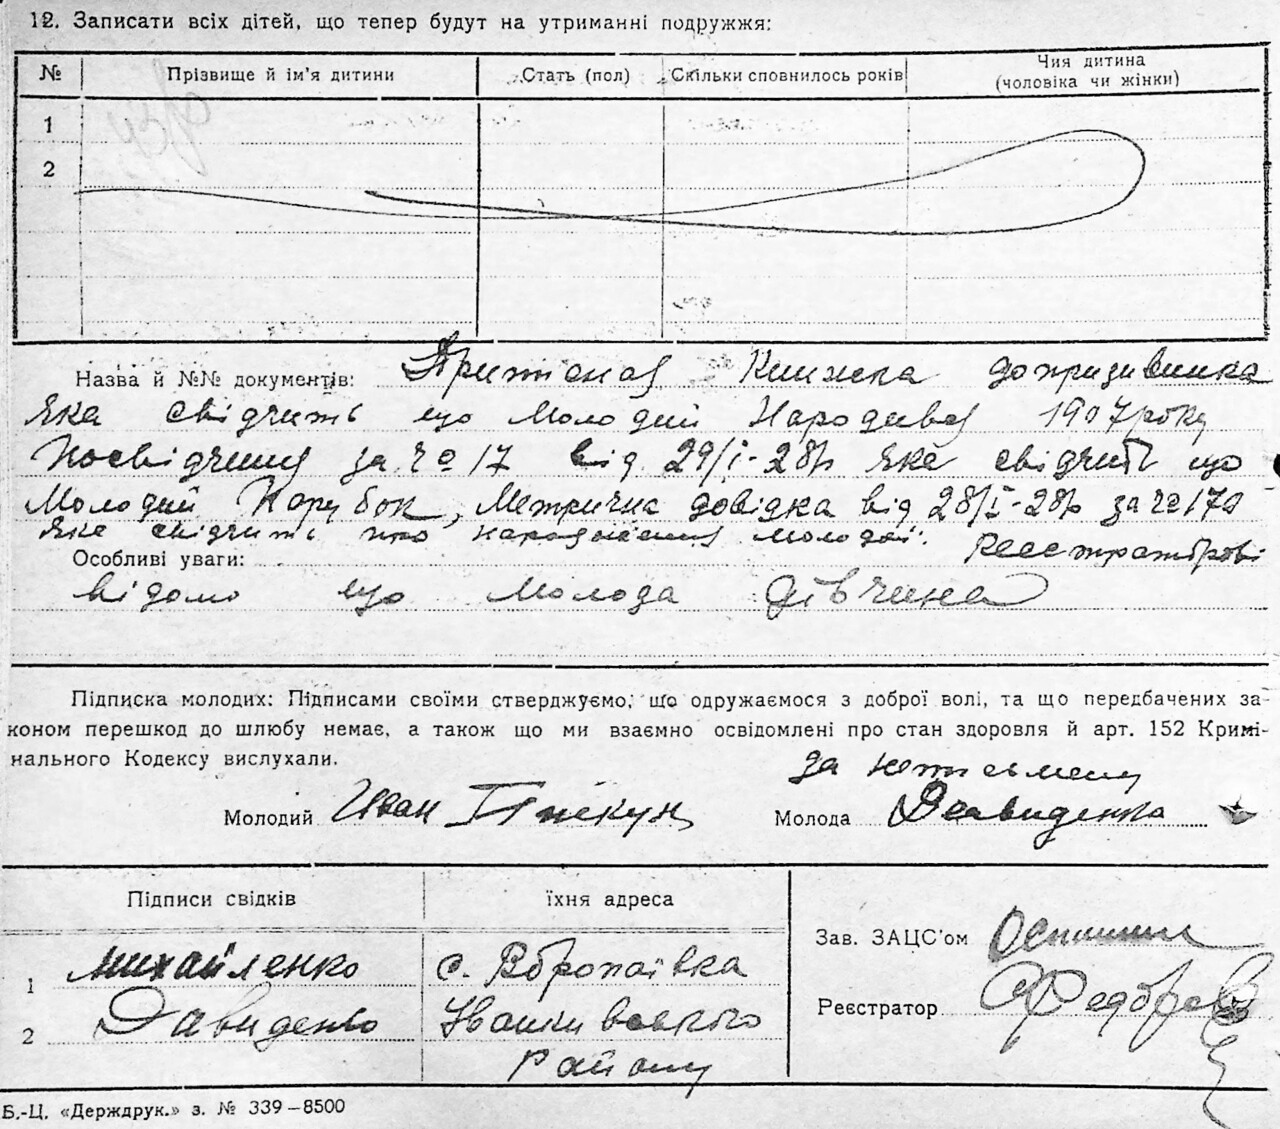 12. Записати всіх дітей, що тепер будут на утриманні подружжя:
№ Прізвище й ім'я дитини Стать (пол) Скільки сповнилось років Чия дитина (чоловіка чи жінки)
1
2
Назва й №№ документів: Книжка допризивника
яка свідчить що молодий народився 1907 року
Посвідчення за ч 17 від 29/I-28р яке свідчить що
Молодий Парубок, Метрична довідка від 28/I-28р за
яке свідчить про народження молодої. Реєстраторові
Особливі уваги:
відомо що молода дівчина
Підписка молодих: Підписами своїми стверджуємо, що одружаємося з доброї волі, та що передбачених за-
коном перешкод до шлюбу немає, а також що ми взаємно освідомлені про стан здоровля й арт. 152 Кримі-
нального Кодексу вислухали.
за неписьмену
Молодий Иван Молода Давиденко
Підписи свідків їхня адреса
Зав. ЗАЦС'ом
1 Михайленко с.
Реєстратор
2 Давиденко
району
Б.-Ц. «Держдрук.» з. № 339–8500